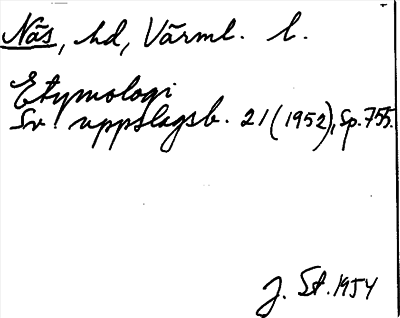 Näs, hd, Värml. l.
Etymologi
Sv. uppslagsb. 21 (1952), sp. 755.
J. St. 1954